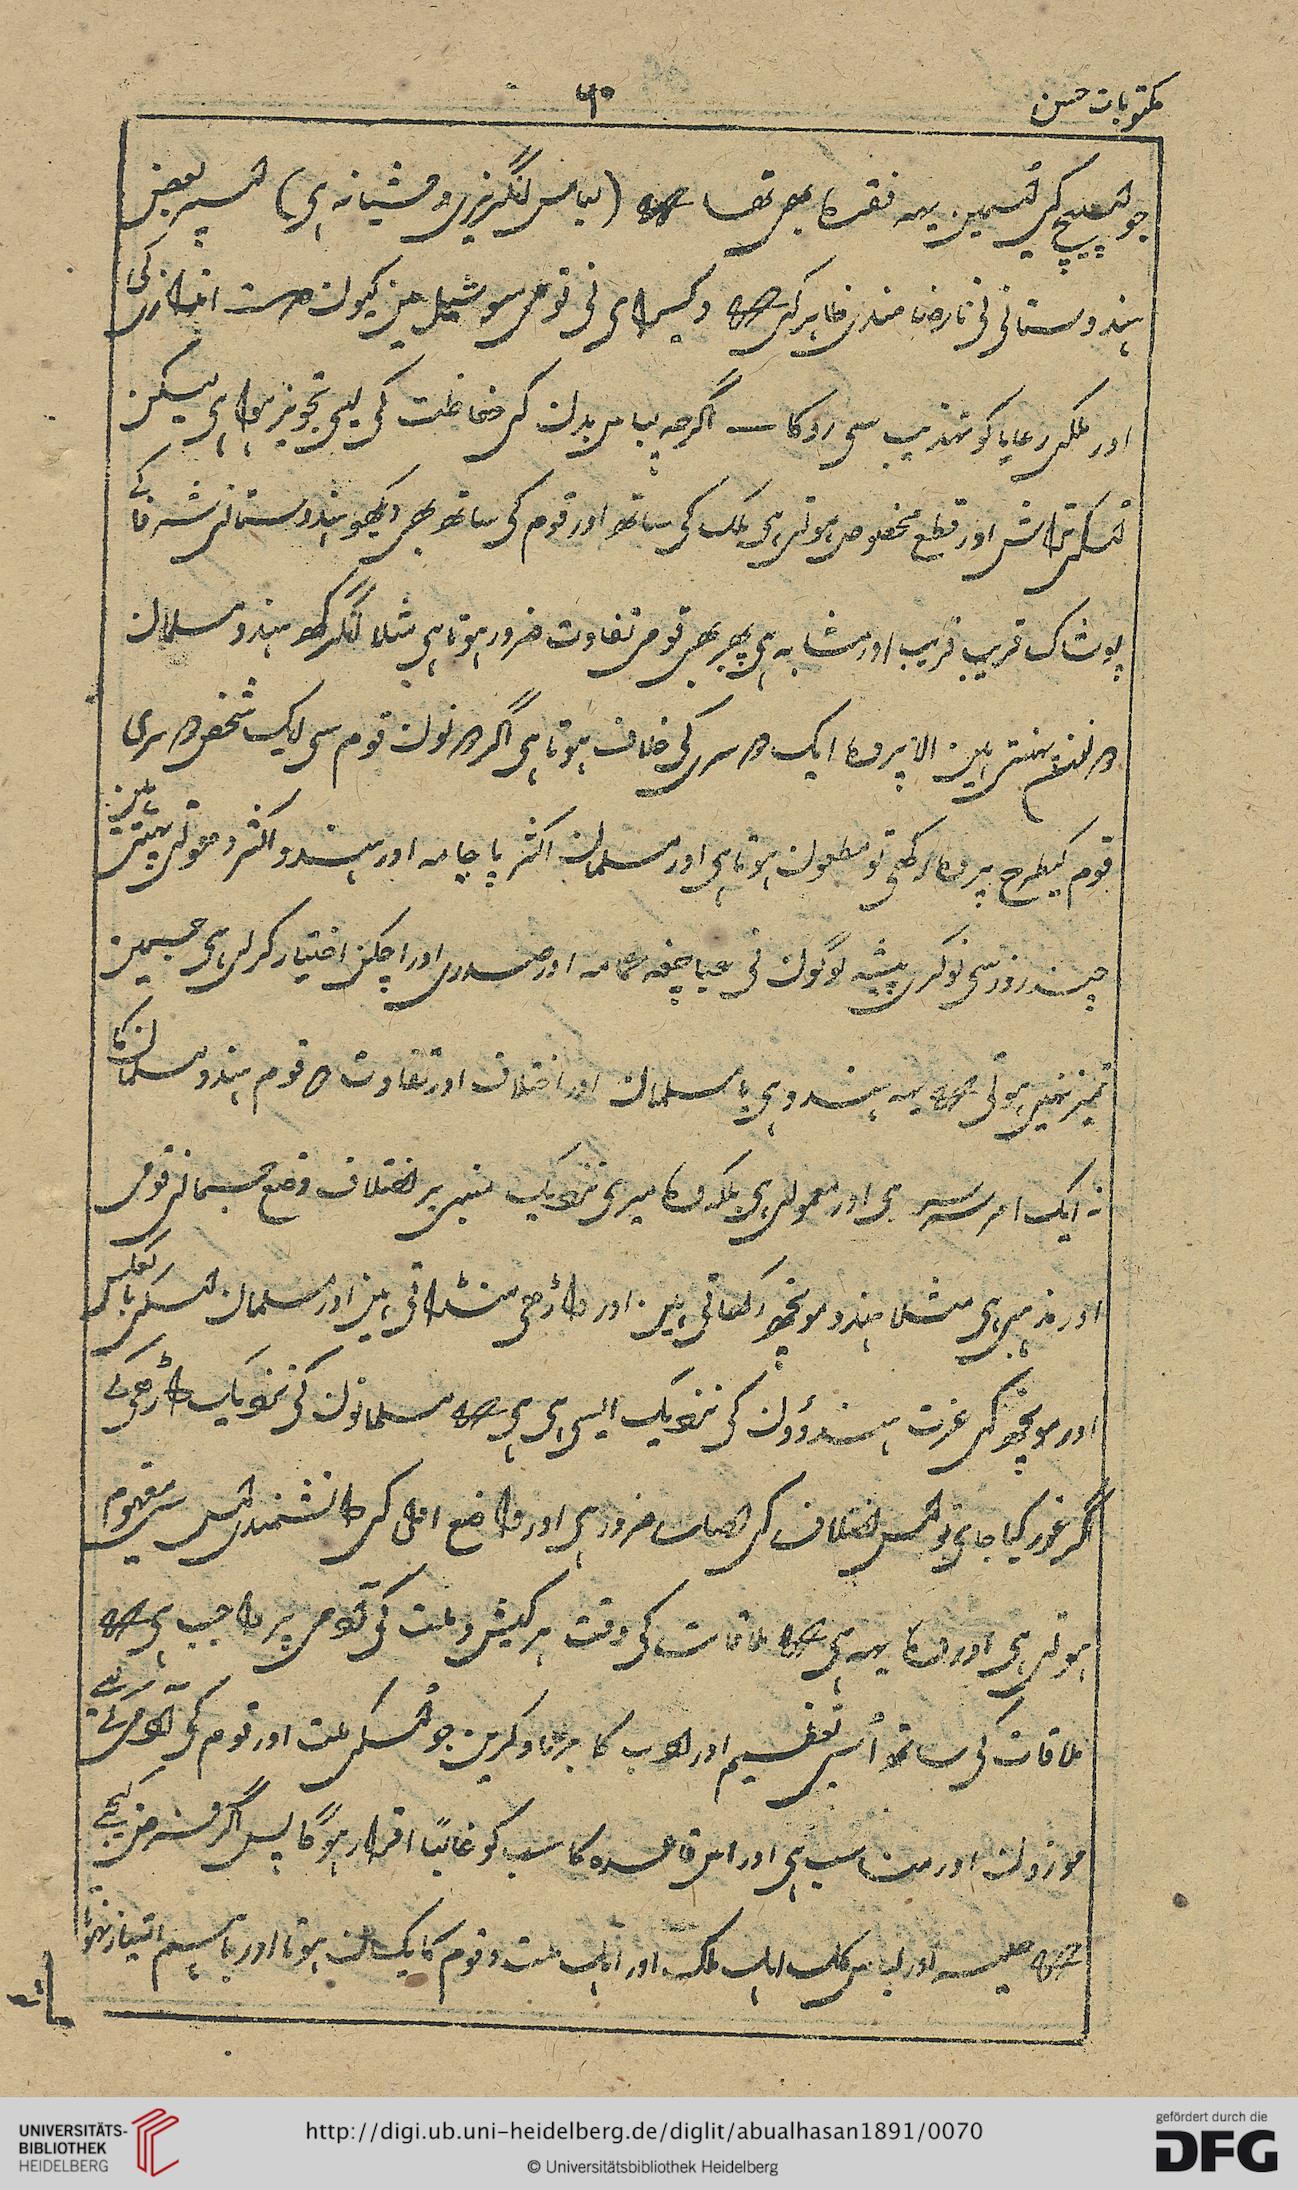 مکتوبات حسن
۶۰
جو اسپیچ کی اسمین یہہ فقرہ بھی تھا کہ (لباس انگریزی وحشیانہ ہی) اسپر بعض
ہندوستانی نی نارضامندی ظاہر کی کہ ویسرای نی قومی سوشیل مین کیون دست اندازی کی
اور ملکی رعایا کو تہذیب سی روکا — اگرچہ لباس بدن کی حفاظت کی لیی تجویز ہوا ہی لیکن
اسکی تراش اور قطع مخصوص ہوتی ہی ملک کی ساتھ اور قوم کی ساتھ بھی دیکھو ہندوستانی شرفا کی
پوشاک قریب قریب اور مشابہ ہی پھر بھی قومی تفاوت ضرور ہوتا ہی مثلا انگرکھہ ہندو مسلمان
دونون پہنتی ہین الا پردہ ایک دوسری کی خلاف ہوتا ہی اگر دونون قوم سی ایک شخص دوسری
قوم کیطرح پردہ رکھی تو مطعون ہوتا ہی اور مسلمان اکثر پاجامہ اور ہندو اکثر دھوتی پہنتی ہین
چند روز سی نوکری پیشہ لوگون نی عبا چغہ عمامہ اور صدری اور اچکن اختیار کرلی ہی جسمین
تمیز نہین ہوتی کہ یہہ ہندو ہی یا مسلمان اور اختلاف اور تفاوت دو قوم ہندو مسلمان کا
نہ ایک امر سرسری اور معمولی ہی بلکہ وہ میری نزدیک مبنی بر اختلاف وضع جسمانی قومی
اور مذہبی ہی مثلا ہندو مونچھ رکھاتی ہین اور داڑھی منڈاتی ہین اور مسلمان اسکی بالعکس
اور مونچھ کی عزت ہندوؤن کی نزدیک ایسی ہی ہی کہ مسلمانون کی نزدیک داڑھی کی
اگر غور کیا جای تو اس اختلاف کی اصل ضرور ہی اور واضع اول کی دانشمندی اس سی مفہوم
ہوتی ہی اور وہ یہہ ہی کہ ملاقات کی وقت ہر کیش و ملت کی آدمی پر واجب ہی کہ
ملاقات کی ساتھ اُسی تعظیم اور ادب کا برتاو کرین جو اسکی ملت اور قوم کی آدمی کی لیی
موزون اور مناسب ہی اور اس قاعدہ کا سب کو غالبًا اقرار ہوگا پس اگر فرض کیجی
کہ حلیہ اور لباس کل اہل ملک اور اہل ملت و قوم کا یکسان ہوتا اور باہم امتیاز نہوتا